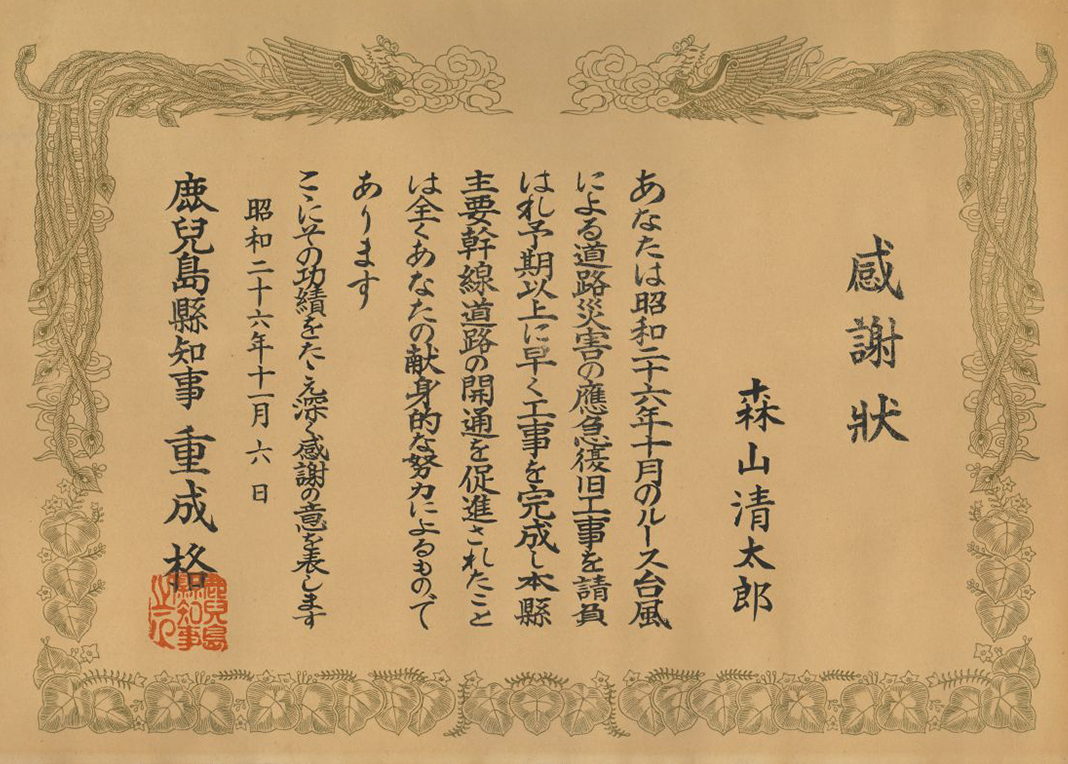 感謝狀
森山清太郎
あなたは昭和二十六年十月のルース台風
による道路災害の應急復旧工事を請負
はれ予期以上に早く工事を完成し本縣
主要幹線道路の開通を促進されたこと
は全くあなたの献身的な努力によるもので
あります
こゝにその功績をたゝえ深く感謝の意を表します
昭和二十六年十一月六日
鹿兒島縣知事 重成格
鹿兒島
縣知事
之印